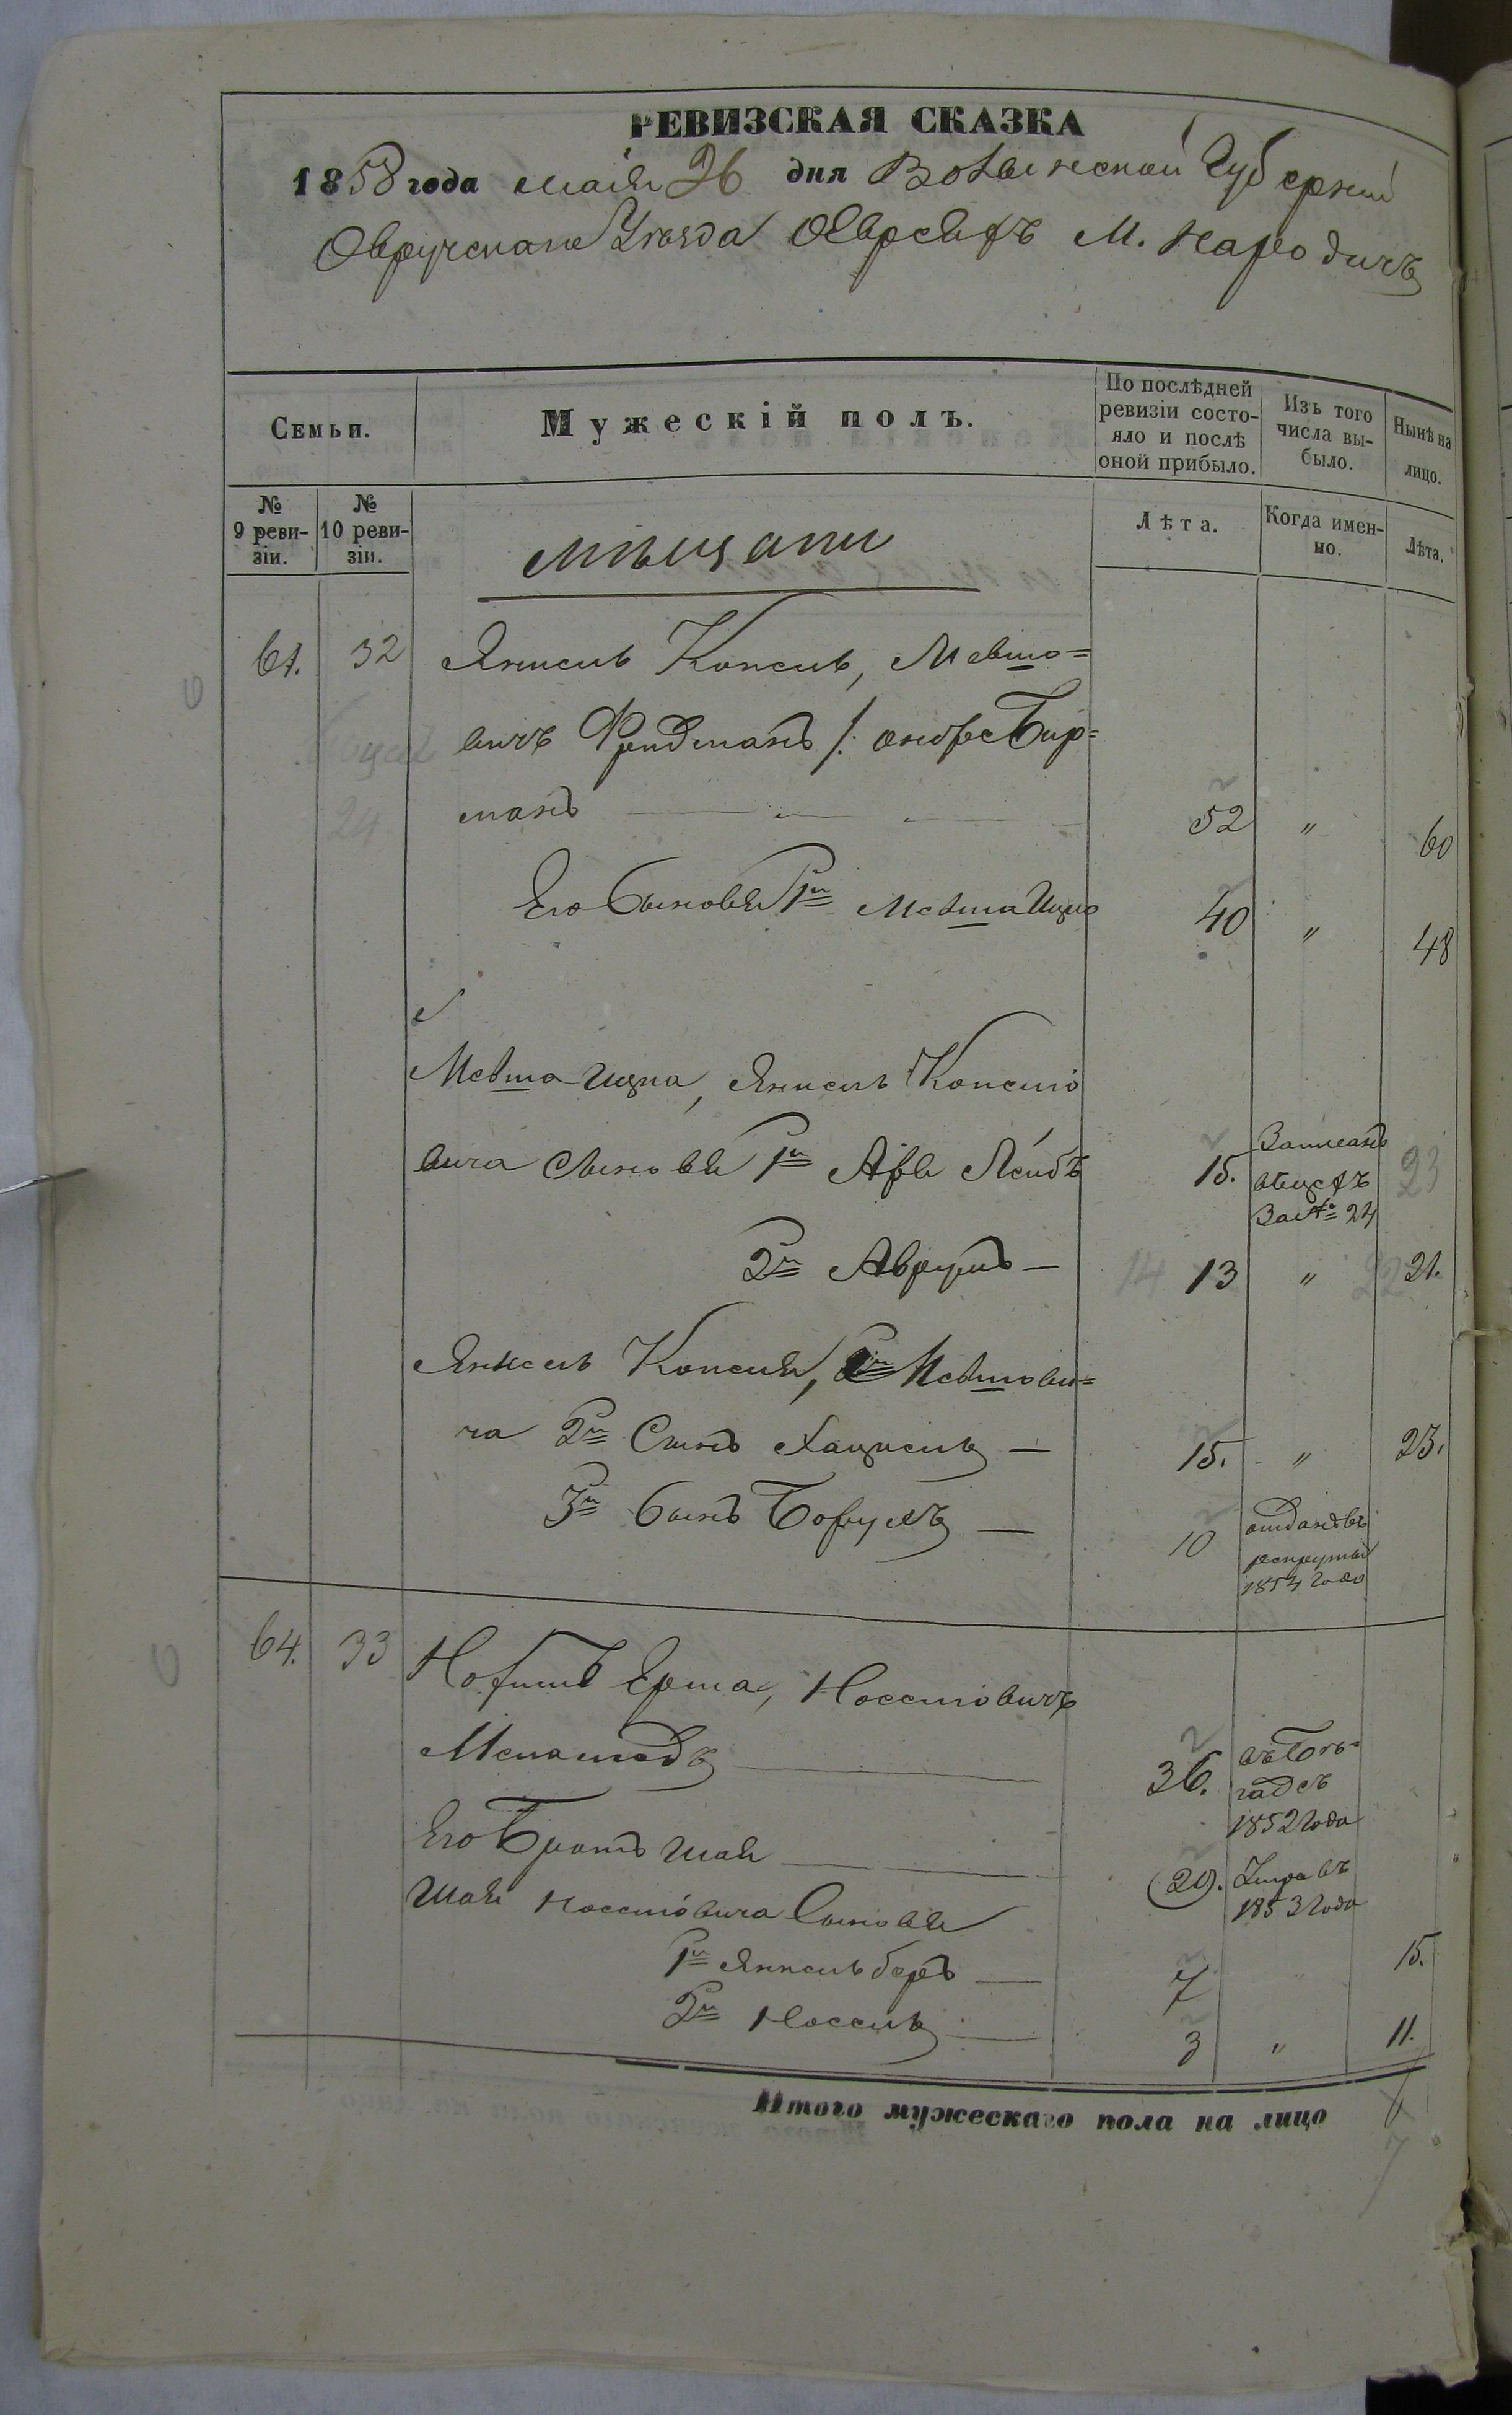 РЕВИЗСКАЯ СКАЗКА
1858 года маія 26 дня Волынской Губерніи
Овручскаго Уезда Обӏ Евреевъ М. Народичъ
Семьи.
Мужескій полъ.
По послѣдней ревизіи состояло и послѣ оной прибыло.
Изъ того числа выбыло.
Нынѣ на лицо.
№ 9 ревизіи.
№ 10 ревизіи.
Мѣщани
Лѣта.
Когда именно.
Лѣта.
61. 32 Янкель Копель, Мевшо=
вичъ Фридманъ /: онъ же Бир=
манъ 52 " 60
Его Сыновья 1й Мевша Ицко 40 " 48
Мевша Ицка, Янкель Копелио
вича Сыновья 1й Арӏ Лейбъ 15. Записанъ
въ цехъ
за № 24 23
2й Аврумъ — 14 13 " 22 21.
Янкель Копеля, Мевшови=
ча 2й Сынъ Хацкель — 15. " 23.
3й Сынъ Борухъ — 10 отданъ въ
рекруты
1854 года
64. 33 Но Ерша, Носсиовичъ
36. въ
1852 года
Его Братъ Шая 29. Умре въ
1853 года
Шаи Носсиовича Сыновья
1й Янкель беръ — 7 15.
2йНоссель — 3 " 11.
Итого мужескаго пола на лицо 6
7